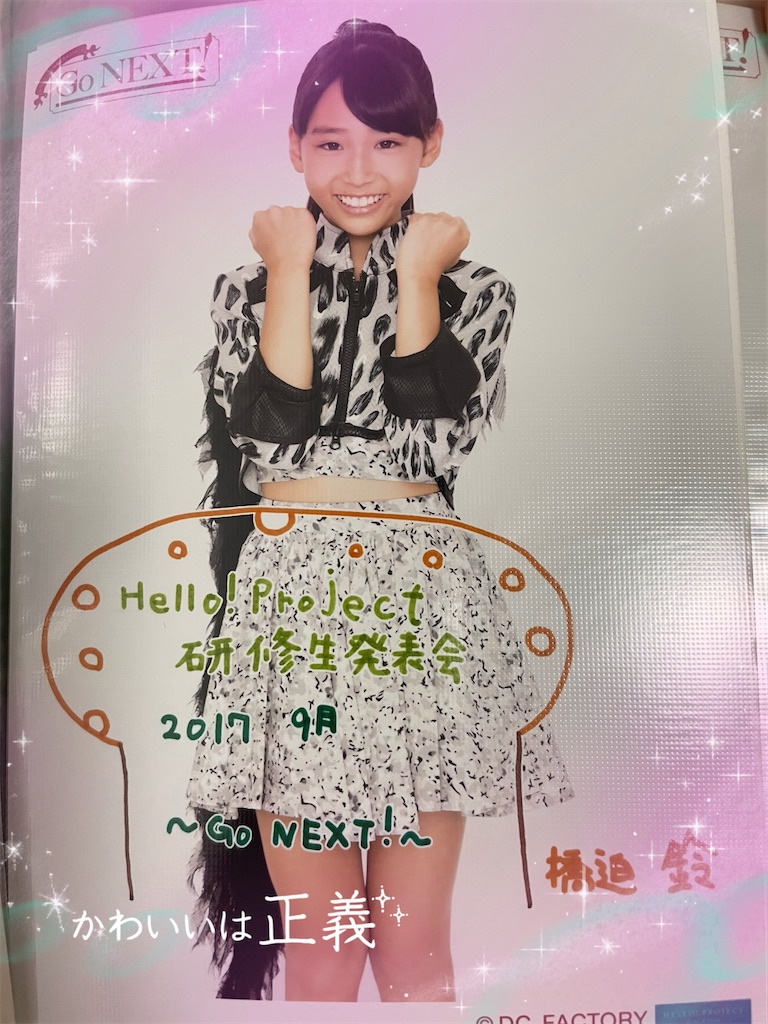 Go NEXT!
T!
Hello! Project
研修生発表会
2017 9月
~GO NEXT!~
橋迫 鈴
かわいいは正義
© DC FACTORY
HELLO! PROJECT